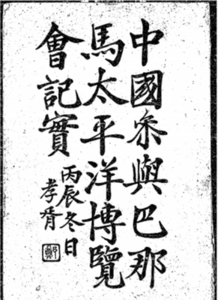 中國叅與巴那
馬太平洋博覽
會記實
丙辰冬日
孝胥
鄭